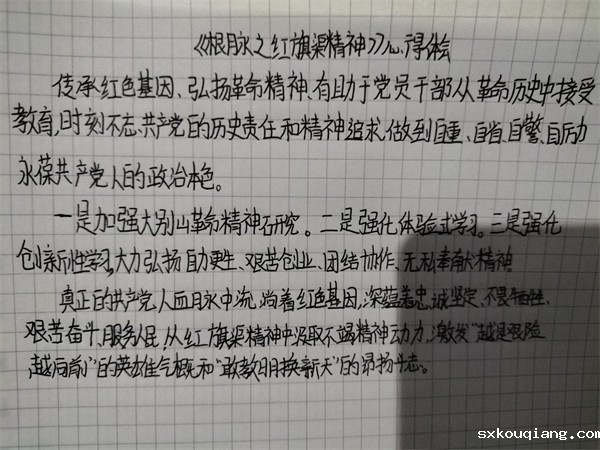 《根脉之红旗渠精神》心得体会
传承红色基因、弘扬革命精神、有助于党员干部从革命历史中接受
教育,时刻不忘共产党的历史责任和精神追求,做到自重、自省、自警、自励
永葆共产党人的政治本色。
一是加强大别山革命精神研究。二是强化体验式学习。三是强化
创新性学习,大力弘扬自力更生、艰苦创业、团结协作、无私奉献精神
真正的共产党人血脉中流淌着红色基因,深蕴着忠诚坚定、不畏牺牲、
艰苦奋斗、服务人民,从红旗渠精神中汲取不竭精神动力,激发“越是艰险
越向前”的英雄气概和“敢教日月换新天”的昂扬斗志。
sxkouqiang.com